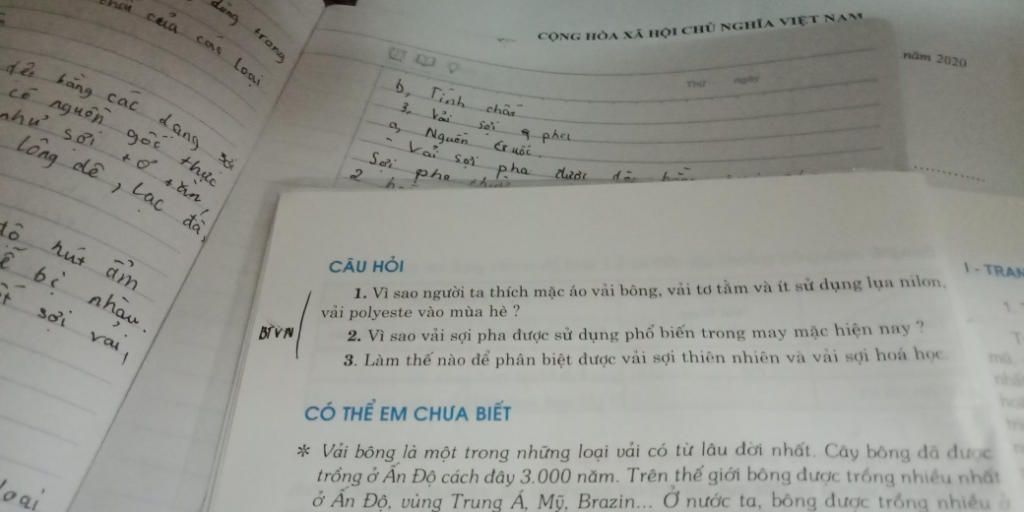 CỘNG HÒA XÃ HỘI CHỦ NGHĨA VIỆT NAM
năm 2020
dùng trong
của các loại
dệt bằng các dạng
có nguồn gốc thực
như sợi tơ tằm,
lông dê, lạc đà,
độ hút ẩm
bị nhàu.
sợi vải,
loại
Thứ ngày
b, Tính chất
3, Vải sợi pha
a, Nguồn gốc.
- Vải sợi pha được
Sợi pha
2
CÂU HỎI
1. Vì sao người ta thích mặc áo vải bông, vải tơ tằm và ít sử dụng lụa nilon,
vải polyeste vào mùa hè ?
BTVN
2. Vì sao vải sợi pha được sử dụng phổ biến trong may mặc hiện nay ?
3. Làm thế nào để phân biệt được vải sợi thiên nhiên và vải sợi hoá học.
CÓ THỂ EM CHƯA BIẾT
* Vải bông là một trong những loại vải có từ lâu đời nhất. Cây bông đã được
trồng ở Ấn Độ cách đây 3.000 năm. Trên thế giới bông được trồng nhiều nhất
ở Ấn Độ, vùng Trung Á, Mỹ, Brazin... Ở nước ta, bông được trồng nhiều ở
I - TRAN
1.